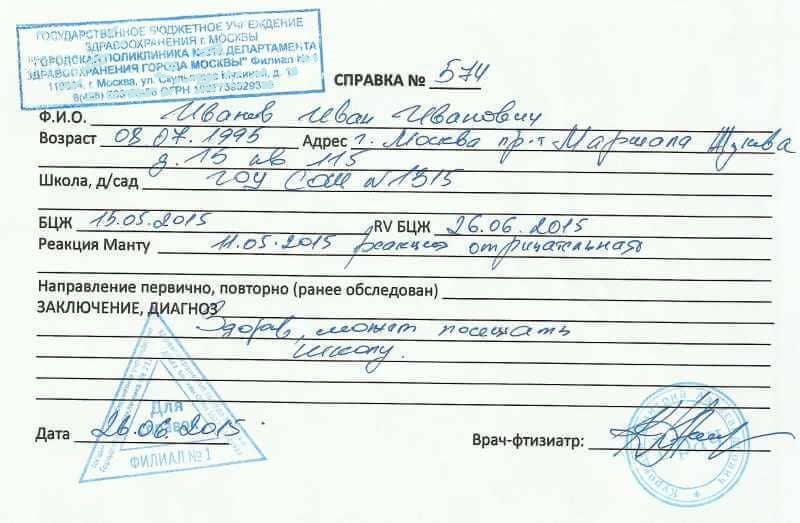 ГОСУДАРСТВЕННОЕ БЮДЖЕТНОЕ УЧРЕЖДЕНИЕ
ЗДРАВООХРАНЕНИЯ г. МОСКВЫ
"ГОРОДСКАЯ ПОЛИКЛИНИКА ДЕПАРТАМЕНТА
ЗДРАВООХРАНЕНИЯ ГОРОДА МОСКВЫ" Филиал №
г. Москва, ул. д.
ОГРН
СПРАВКА № 574
Ф.И.О. Иванов Иван Иванович
Возраст 08.07.1995 Адрес г. Москва пр-т Маршала Жукова
д. 15 кв 115
Школа, д/сад ГОУ СОШ N1315
БЦЖ 15.05.2015 RV БЦЖ 26.06.2015
Реакция Манту 11.05.2015 реакция отрицательная
Направление первично, повторно (ранее обследован)
ЗАКЛЮЧЕНИЕ, ДИАГНОЗ
Здоров, может посещать
школу.
Для
Дата 26.06.2015 Врач-фтизиатр:
ФИЛИАЛ № 1